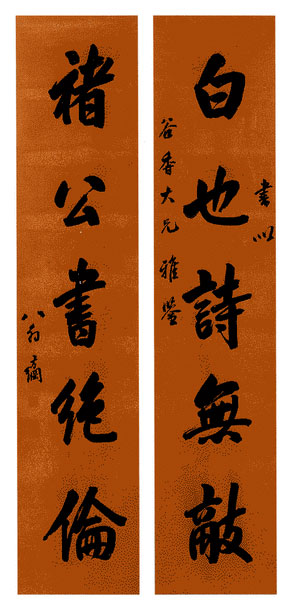 白也詩無敵
書以
谷香大兄雅鑒
褚公書絕倫
八